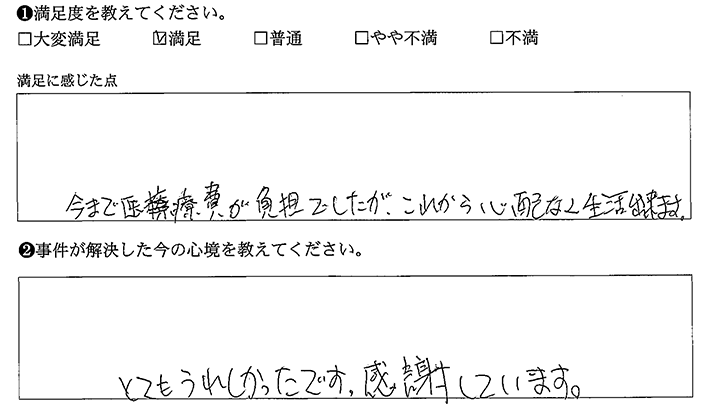 ❶満足度を教えてください。
□大変満足 ☑満足 □普通 □やや不満 □不満
満足に感じた点
今まで医療費が負担でしたが、これから心配なく生活出来ます。
❷事件が解決した今の心境を教えてください。
とてもうれしかったです。感謝しています。